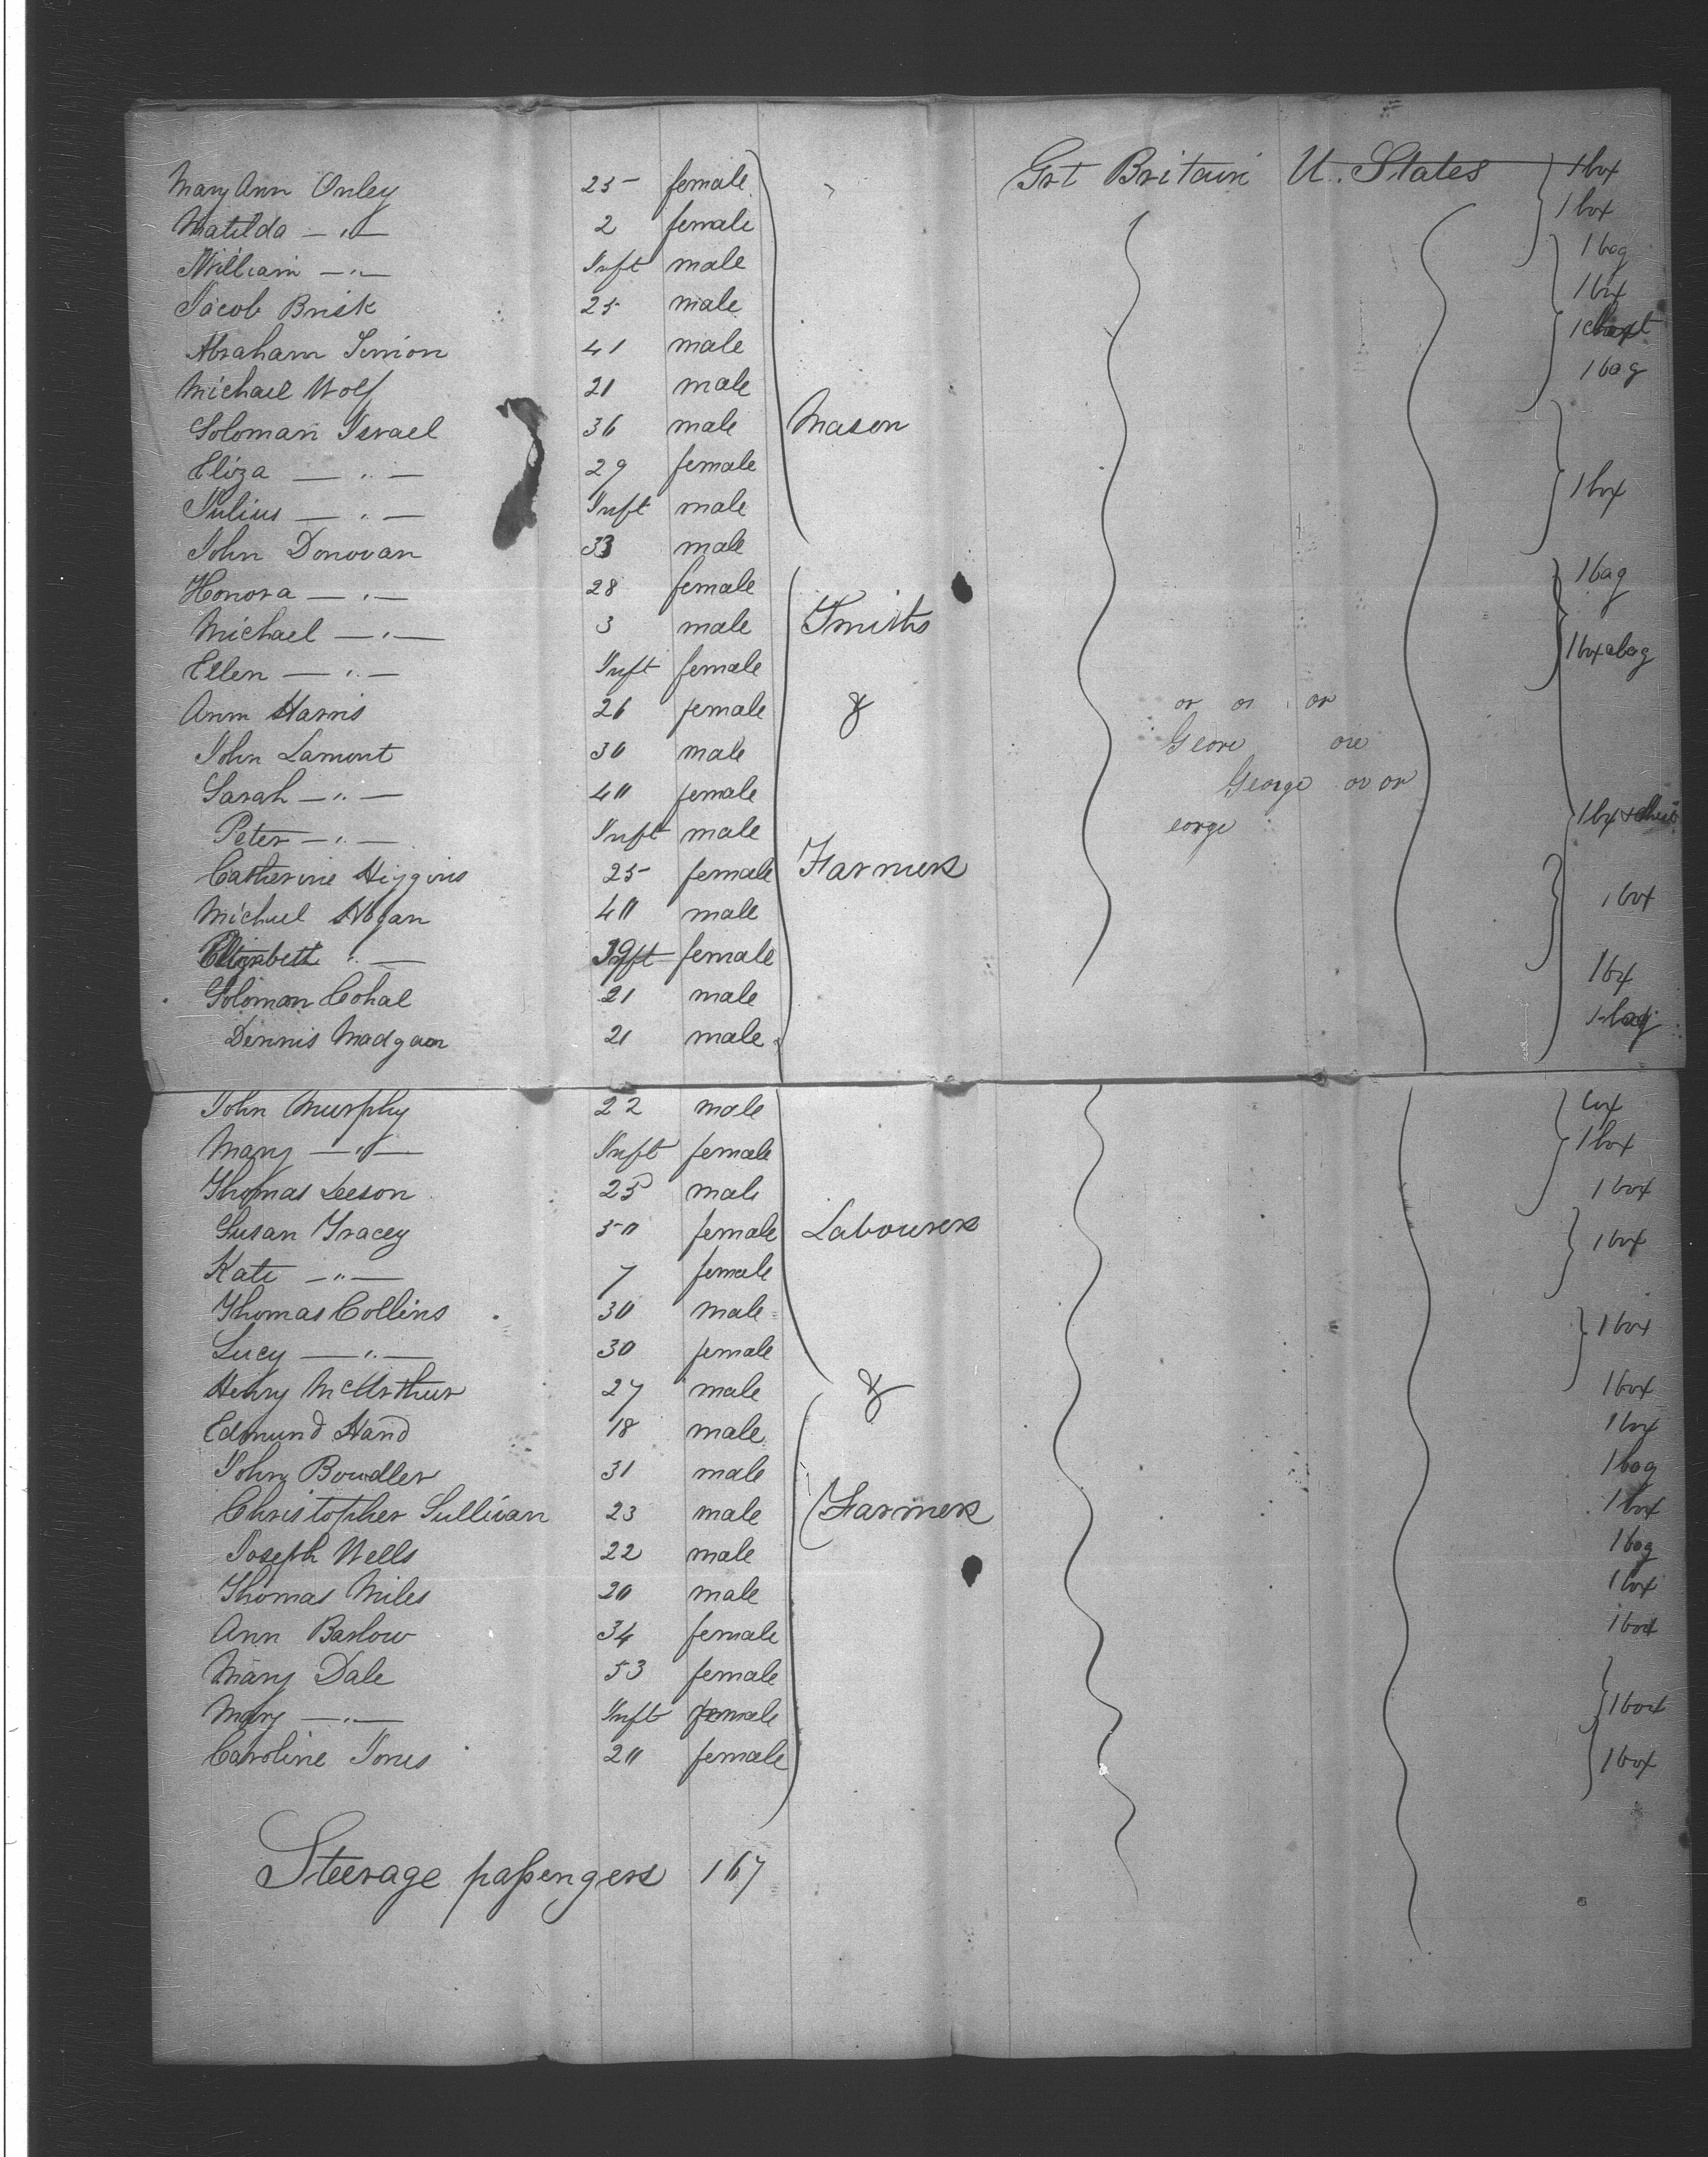 Mary Ann Onley 25 female Grt Britain U. States 1 box
Matilda — " — 2 female 1 box
William — " — Inft male 1 bag
Jacob Brisk 25 male 1 box
Abraham Simion 41 male 1
Michael Wolf 21 male 1 bag
Soloman Israel 36 male Mason
Eliza — " — 29 female 1 box
Julius — " — Inft male
John Donovan 33 male
Honora — " — 28 female 1 bag
Michael — " — 3 male Smiths
Ellen — " — Inft female 1 box a bag
Ann Harris 26 female & or or or
John Lamont 30 male Geore ore
Sarah — " — 40 female George or or
Peter — " — Inft male eorge 1 bx
Catherine Higgins 25 female Farmers
Michael Hogan 40 male 1 box
Elizabeth " — 19 female
Soloman Cohal 21 male 1 box
Dennis Madgan 21 male 1 bag
John Murphy 22 male box
Mary — " — Inft female 1 box
Thomas Leeson 25 male 1 box
Susan Tracey 50 female Labourers 1 box
Kate — " — 7 female
Thomas Collins 30 male 1 box
Lucy — " — 30 female
Henry McArthur 27 male & 1 box
Edmund Hand 18 male 1 box
John Bowdler 31 male 1 bag
Christopher Sullivan 23 male Farmers 1 box
Joseph Wells 22 male 1 bag
Thomas Miles 20 male 1 box
Ann Barlow 34 female 1 box
Mary Dale 53 female
Mary — " — Inft female 1 box
Caroline Jones 20 female 1 box
Steerage passengers 167